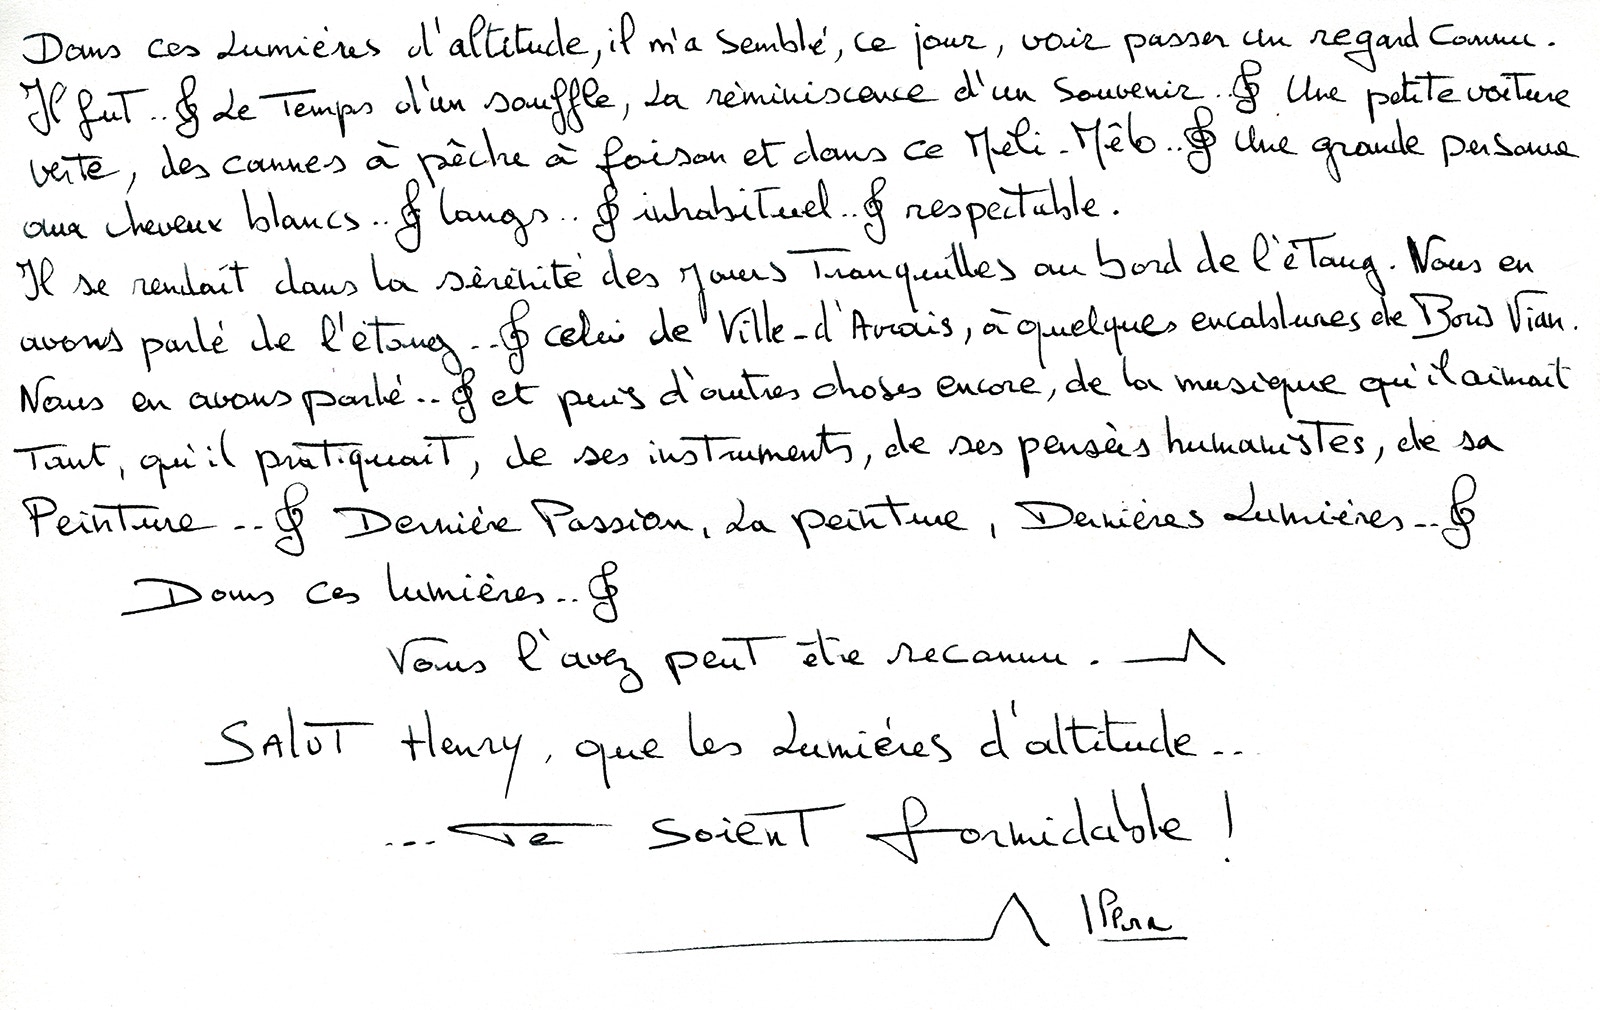 Dans ces Lumières d'altitude, il m'a semblé, ce jour, voir passer un regard connu.
Il fut.. 𝄞 Le Temps d'un souffle, La réminiscence d'un souvenir.. 𝄞 Une petite voiture
verte, des cannes à pêche à foison et dans ce Méli-Mêlo.. 𝄞 Une grande personne
aux cheveux blancs.. 𝄞 longs.. 𝄞 inhabituel.. 𝄞 respectable.
Il se rendait dans la sérénité des jours Tranquilles au bord de l'étang. Nous en
avons parlé de l'étang.. 𝄞 celui de Ville-d'Avrais, à quelques encablures de Boris Vian.
Nous en avons parlé.. 𝄞 et puis d'autres choses encore, de la musique qu'il aimait
Tant, qu'il pratiquait, de ses instruments, de ses pensées humanistes, de sa
Peinture.. 𝄞 Dernière Passion, La peinture, Dernières Lumières.. 𝄞
Dans ces lumières.. 𝄞
Vous l'avez peut être reconnu.
Salut Henry, que les Lumières d'altitude..
... Te soient formidable !